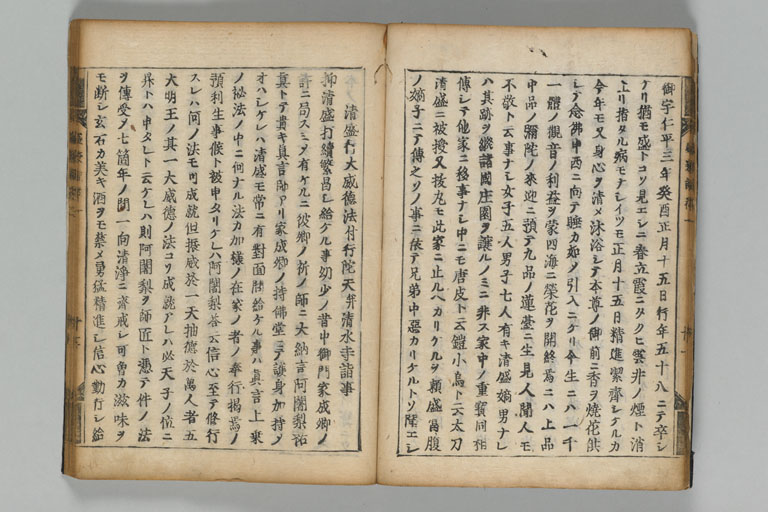 御宇仁平三年癸酉正月十五日行年五十八ニテ卒シ
ケリ猶モ盛トコソ見エシニ春立霞ニタクヒ雲井ノ煙ト消
上リ指タル病モナシイツモ正月十五日精進潔齋シケルカ
今年モ又身心ヲ清メ沐浴シテ本尊ノ御前ニ香ヲ焼花供
シテ念佛申西ニ向テ睡カ如ノ引入ニケリ今生ニハ一千
一體ノ觀音ノ利益ヲ蒙四海ニ榮花ヲ開終焉ニハ上品
中品ノ彌陀ノ來迎ニ預テ九品ノ蓮臺ニ生見人聞人モ
不敬ト云事ナシ女子五人男子七人有キ清盛嫡男ナレ
ハ其跡ヲ繼諸國庄園ヲ讓ルノミニ非ス家中ノ重寳同相
傳シテ他家ニ移事ナシ中ニモ唐皮ト云鎧小烏ト云太刀
清盛ニ被授又抜丸モ此家ニ止ルヘカリケルヲ頼盛當腹
ノ嫡子ニテ傳之ソノ事ニ依テ兄弟中惡カリケルトソ聞エシ
清盛行大威德法付行陀天并清水寺詣事
抑清盛打續繁昌シ給ケル事幼少ノ昔中御門家成卿ノ
許ニ局スミノ有ケルニ彼卿ノ祈ノ師ニ大納言阿闍梨祐
眞トテ貴キ眞言師アリ家成卿ノ持佛堂ニテ護身加持ノ
オハシケレハ清盛モ常ニ有對面問給ケル事ハ眞言上乘
ノ祕法ノ中ニ何ナル法カ加樣ノ在家ノ者ノ奉行揭焉ノ
預利生事候ト被申タリケレハ阿闍梨荅云信心至テ修行
スレハ何ノ法モ可成就但振威於一天抽德於萬人者五
大明王ノ其一大威德ノ法コソ成就アレハ必天子ノ位ニ
昇トハ申タレト云ケレハ則阿闍梨ヲ師匠ト憑テ件ノ法
ヲ傳受ノ七箇年ノ間一向清淨ニ齋戒シ可魯カ滋味ヲ
モ断シ玄石カ美キ酒ヲモ禁メ勇猛精進シ信心勤行シ給